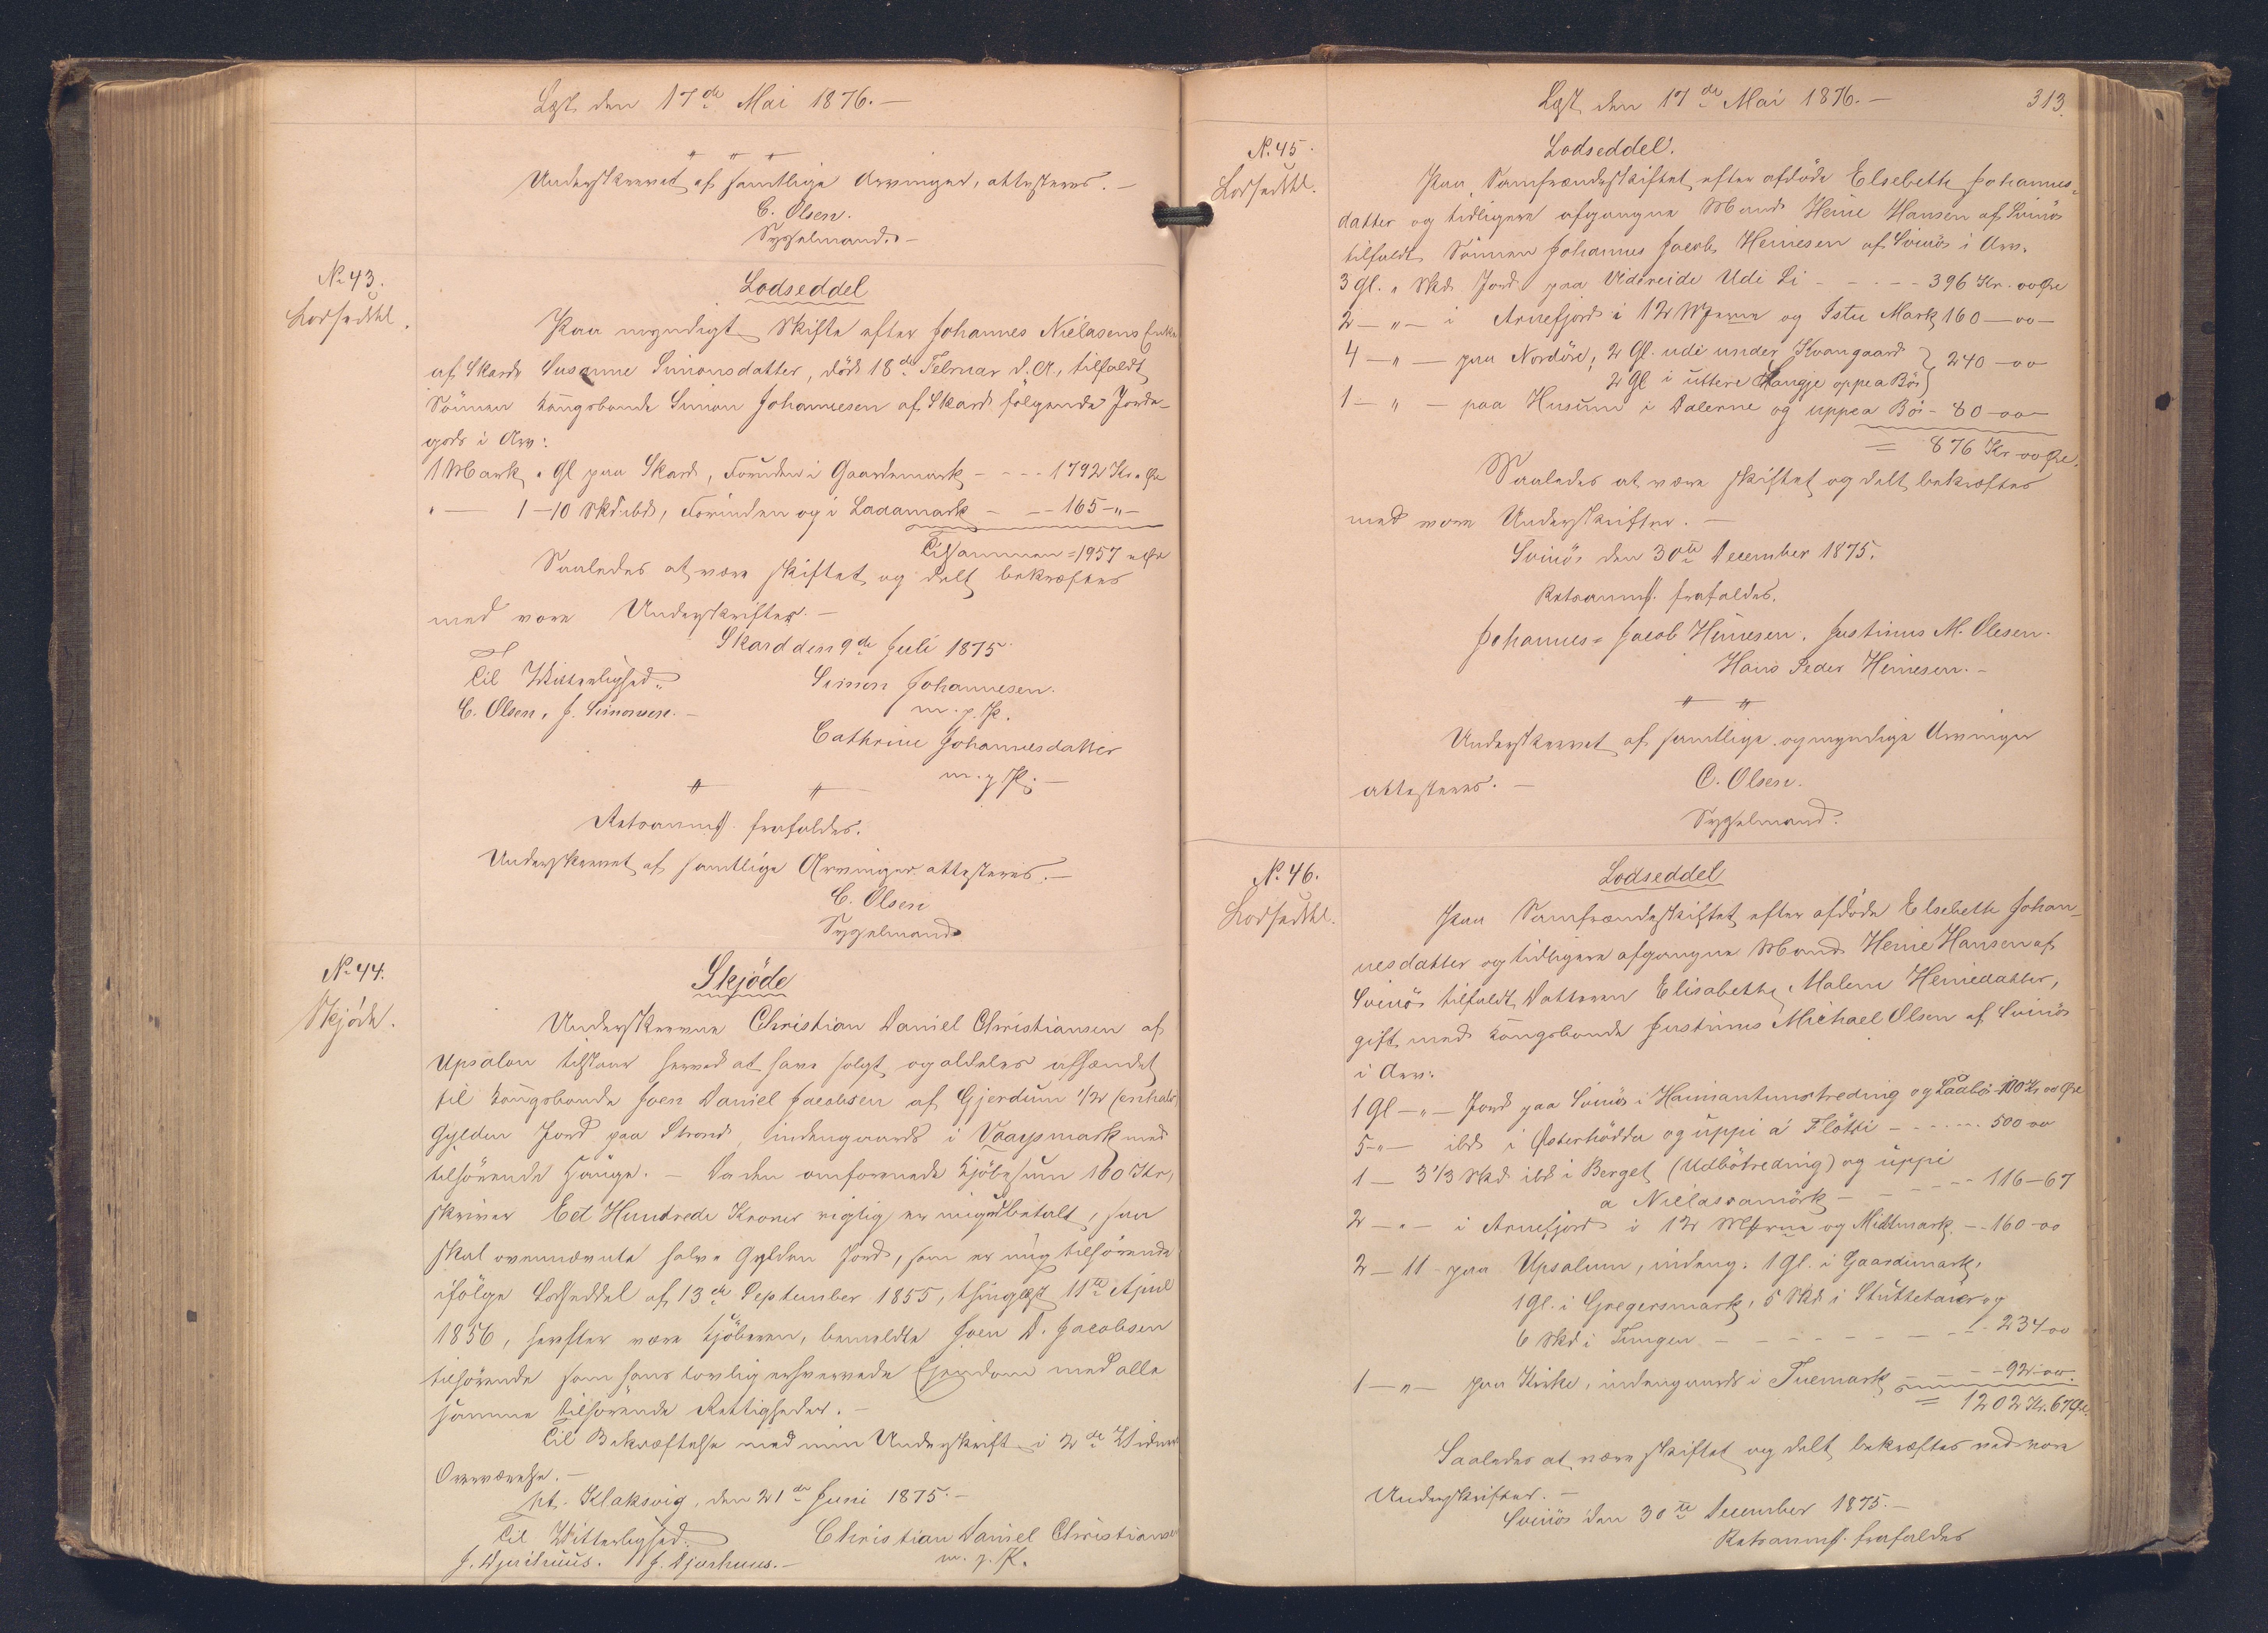 Lgst. den 17de Mai 1876.—
Underskrevet af samtlige Arvinger, attesteres.—
C. Olsen.
Sysselmand.—
No 43.
Lodseddel.
Lodseddel
Paa myndigt Skifte efter Johannes Nielasens Enke
af Skard Susanne Simonsdatter, död 18de Februar d. A., tilfaldt
Sönnen Kongsbonde Simon Johannesen af Skard fölgende Jorde-
gods i Arv:
1 Mark „ Gl paa Skard, i Gaardemark - - - 1792 Kr „ Øre
„ — 1—10 Skd ibd, og i Ladamark - - - 165-„-
Tilsammen = 1957 „ Øre
Saaledes at være skiftet og delt bekræftes
med vore Underskrifter.—
Skard den 9de Juli 1875.
Til Vitterlighed.
C. Olsen, J. Simonsen.—
Simon Johannesen.
m. p. P.
Cathrine Johannesdatter
m. p. P.—
Retsanmf. frafaldes.
Underskrevet af samtlige Arvinger attesteres.—
C. Olsen
Sysselmand
No 44.
Skjöde.
Skjöde
Underskrevne Christian Daniel Christiansen af
Upsalon tilstaar herved at have solgt og aldeles afhændet
til Kongsbonde Joen Daniel Jacobsen af Gjerdum 1/2 (en halv)
Gylden Jord paa Strond, indengaards i Vaagsmark med
tilhörende Hauge.— Da den omforenede Kjöbesum 100 Kr,
skriver Eet Hundrede Kroner rigtig er mig betalt, saa
skal ovennævnte halve Gylden Jord, som er mig tilhörende
ifölge Lodseddel af 13de September 1855, thinglæst 11te April
1856, herefter være Kjöberen, bemeldte Joen D. Jacobsen
tilhörende som hans lovlig erhvervede Ejendom med alle
samme tilhörende Rettigheder.—
Til Bekræftelse med min Underskrift i 2de Vidners
Overværelse.—
pt. Klaksvig, den 21de Juni 1875.—
Til Vitterlighed.
J. Djurhuus. J. Djurhuus.—
Christian Daniel Christiansen
m. p. P.
Lgst. den 17de Mai 1876.— 313.
No. 45.
Lodseddel.
Lodseddel.
Paa Samfrændeskiftet efter afdöde Elsebeth Johannes-
datter og tidligere afgangne Mand Heine Hansen af Svinös
tilfaldt Sönnen Johannes Jacob Heinesen af Svinös i Arv.
3 Gl. „ Skd. Jord paa Videreide Udi Li - - - - 396 Kr. oo Øre
2 — „ — i Arnefjord i 12 Mferne og Istu Mark 160 — oo —
4 — „ — paa Nordöre, 2 Gl. udi under Kvangaard } 240 — oo
2 Gl i uttere Haugje oppea Bös
1 — „ — paa Husum i Dalerne og uppea Bö - 80 — oo —
= 876 Kr oo Øre.
Saaledes at være skiftet og delt bekræftes
med vore Underskrifter.—
Svinös den 30te December 1875.
Retsanmf. frafaldes.
Johannes Jacob Heinesen. Justinus M. Olesen.
Hans Peder Heinesen.—
Underskrevet af samtlige og myndige Arvinger
attesteres.— C. Olsen.
Sysselmand.
No. 46.
Lodseddel.
Lodseddel
Paa Samfrændeskiftet efter afdöde Elsebeth Johan-
nesdatter og tidligere afgangne Mand Heine Hansen af
Svinös tilfaldt Datteren Elisabeth Malene Heinedatter,
gift med Kongsbonde Justinus Michael Olsen af Svinös
i Arv:
1 Gl — „ — Jord paa Svinös i Hamantunstreding og Laabö 100 Kr oo Øre
5 - „ — ibd i Østerhödda og uppi á Flötti - - - - - 500 oo
1 — 3 1/3 Skd ibd i Berget (Udbötreding) og uppi
a Nielasamörk - - - - - 116—67
2 — „ — i Arnefjord i 12 Mferne og Midtmark - - 160-oo
2 — 11 - paa Upsalum, indeng: 1 Gl. i Gaardimark,
1 Gl. i Gregersmark, 5 Skd i og
6 Skd i Tungen - - - - - - - - 234-oo
1 — „ — paa Kirke, indengaards i Tuemark - - - 92-oo.
= 1202 Kr. 67 Øre.
Saaledes at være skiftet og delt bekræftes med vore
Underskrifter.—
Svinös den 30te December 1875.—
Retsanmf. frafaldes